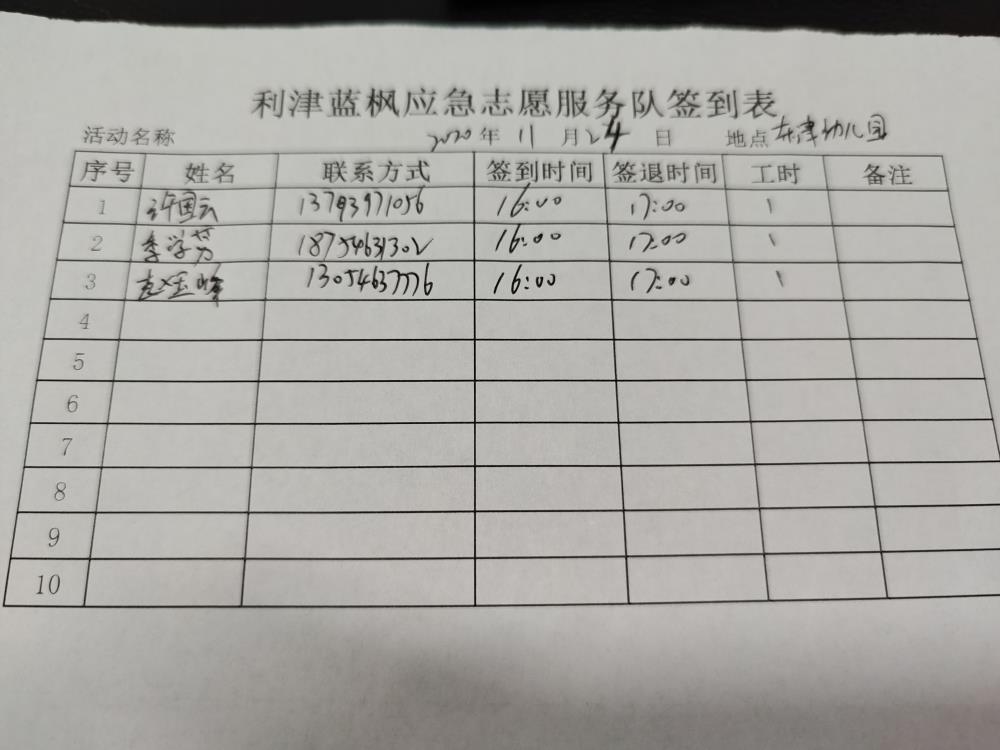 利津蓝枫应急志愿服务队签到表
活动名称 2020年 11 月 24 日 地点 东津幼儿园
序号 姓名 联系方式 签到时间 签退时间 工时 备注
1 许国云 13793971056 16:00 17:00 1
2 李学芳 18754631302 16:00 17:00 1
3 赵玉峰 13054637776 16:00 17:00 1
4
5
6
7
8
9
10